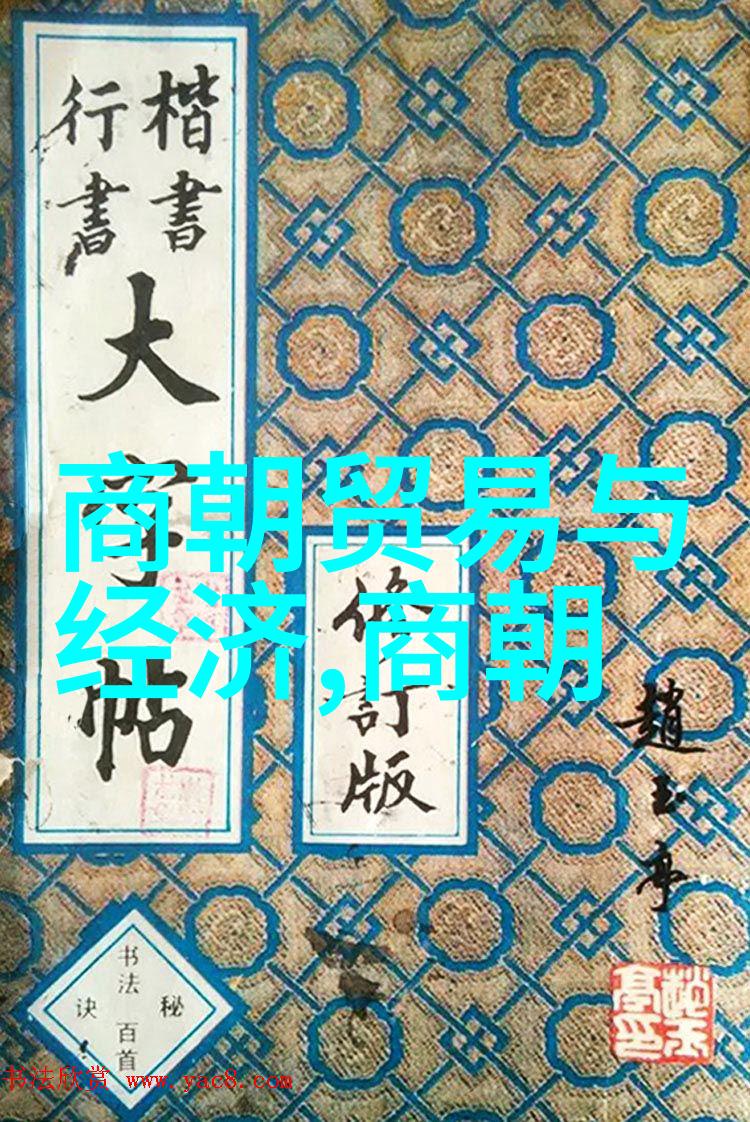 楷書
行書
大字帖
修訂版
趙玉亭
商朝贸易与
经济,商朝
书法百首
秘
诀
书法欣赏 www.yac8.com